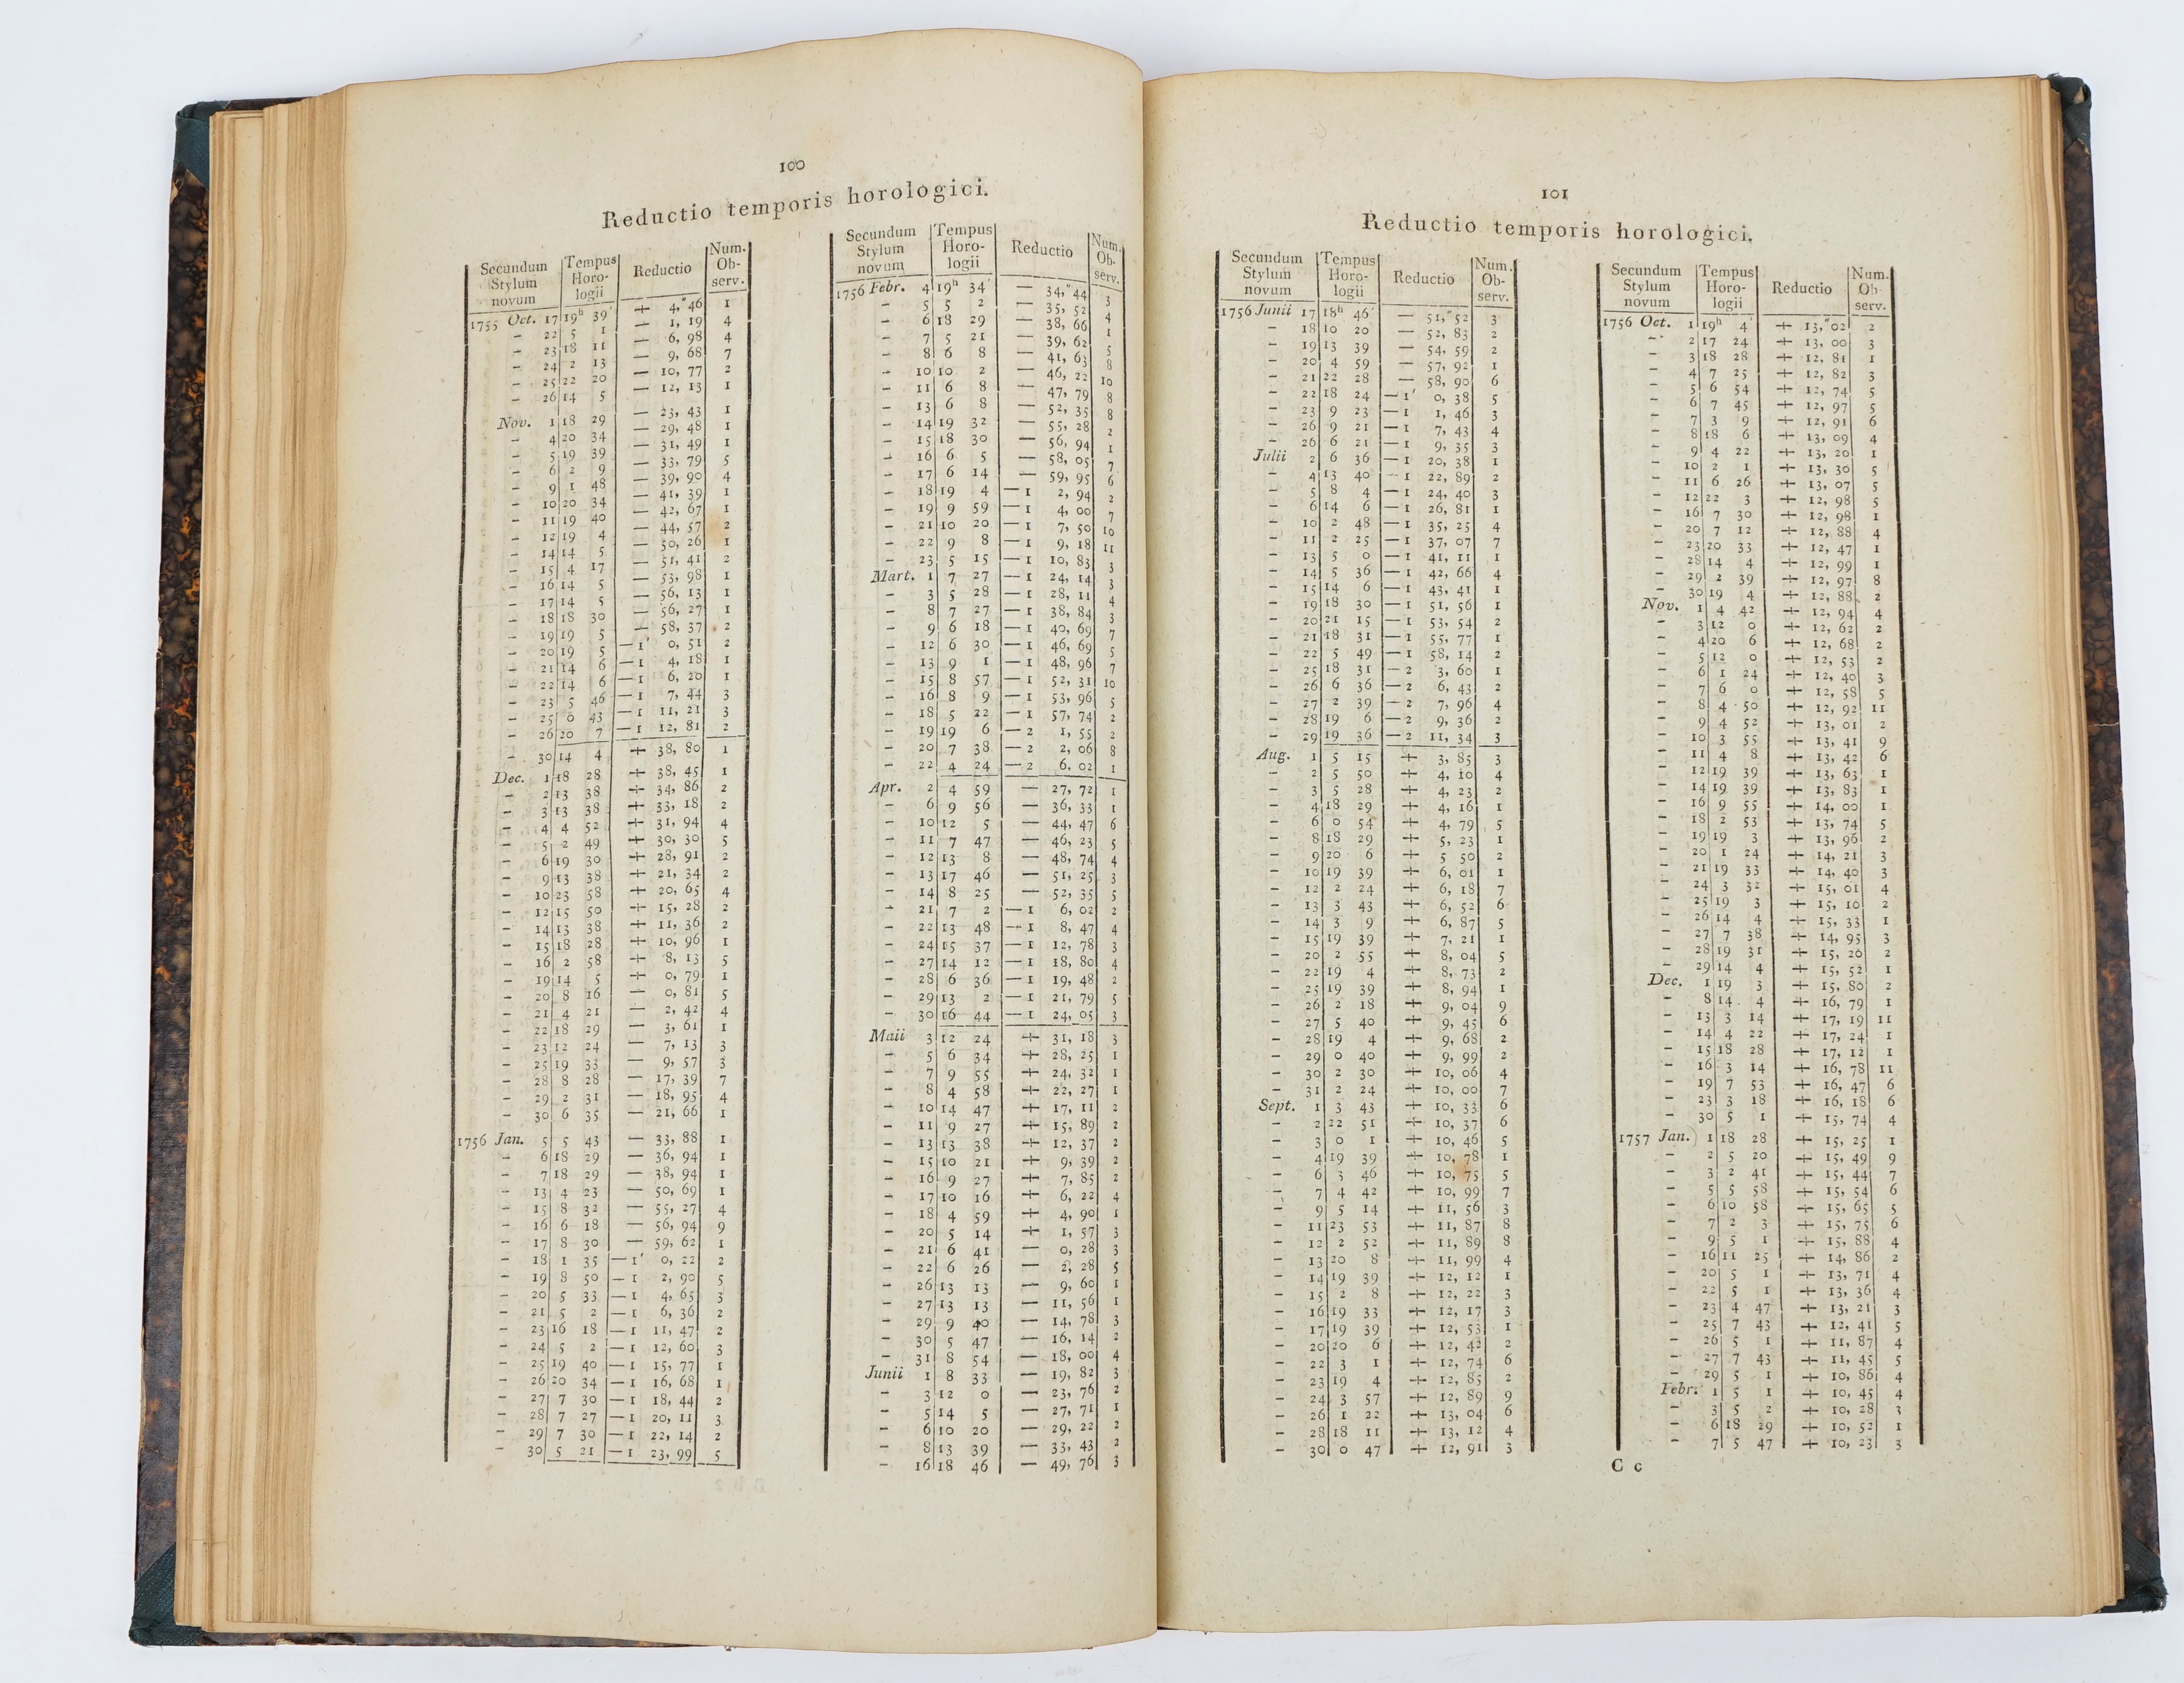 100
Reductio temporis horologici.
Secundum Stylum novum | Tempus Horologii | Reductio | Num. Observ.
1755 Oct. 17 19h 39' + 4,"46 1
- 22 5 1 — 1, 19 4
- 23 18 11 — 6, 98 4
- 24 2 13 — 9, 68 7
- 25 22 20 — 10, 77 2
- 26 14 5 — 12, 13 1
Nov. 1 18 29 — 23, 43 1
- 4 20 34 — 29, 48 1
- 5 19 39 — 31, 49 1
- 6 2 9 — 33, 79 5
- 9 1 48 — 39, 90 4
- 10 20 34 — 41, 39 1
- 11 19 40 — 42, 67 1
- 12 19 4 — 44, 57 2
- 14 14 5 — 50, 26 1
- 15 4 17 — 51, 41 2
- 16 14 5 — 53, 98 1
- 17 14 5 — 56, 13 1
- 18 18 30 — 56, 27 1
- 19 19 5 — 58, 37 2
- 20 19 5 —1' 0, 51 2
- 21 14 6 —1 4, 18 1
- 22 14 6 —1 6, 20 1
- 23 5 46 —1 7, 44 3
- 25 0 43 —1 11, 21 3
- 26 20 7 —1 12, 81 2
- 30 14 4 + 38, 80 1
Dec. 1 18 28 + 38, 45 1
- 2 13 38 + 34, 86 2
- 3 13 38 + 33, 18 2
- 4 4 52 + 31, 94 4
- 5 2 49 + 30, 30 5
- 6 19 30 + 28, 91 2
- 9 13 38 + 21, 34 2
- 10 23 58 + 20, 65 4
- 12 15 50 + 15, 28 2
- 14 13 38 + 11, 36 2
- 15 18 28 + 10, 96 1
- 16 2 58 + 8, 13 5
- 19 14 5 + 0, 79 1
- 20 8 16 — 0, 81 5
- 21 4 21 — 2, 42 4
- 22 18 29 — 3, 61 1
- 23 12 24 — 7, 13 3
- 25 19 33 — 9, 57 3
- 28 8 28 — 17, 39 7
- 29 2 31 — 18, 95 4
- 30 6 35 — 21, 66 1
1756 Jan. 5 5 43 — 33, 88 1
- 6 18 29 — 36, 94 1
- 7 18 29 — 38, 94 1
- 13 4 23 — 50, 69 1
- 15 8 32 — 55, 27 4
- 16 6 18 — 56, 94 9
- 17 8 30 — 59, 62 1
- 18 1 35 —1' 0, 22 2
- 19 8 50 —1 2, 90 5
- 20 5 33 —1 4, 65 3
- 21 5 2 —1 6, 36 2
- 23 16 18 —1 11, 47 2
- 24 5 2 —1 12, 60 3
- 25 19 40 —1 15, 77 1
- 26 20 34 —1 16, 68 1
- 27 7 30 —1 18, 44 2
- 28 7 27 —1 20, 11 3
- 29 7 30 —1 22, 14 2
- 30 5 21 —1 23, 99 5
Secundum Stylum novum | Tempus Horologii | Reductio | Num. Observ.
1756 Febr. 4 19h 34' — 34,"44 3
- 5 5 2 — 35, 52 4
- 6 18 29 — 38, 66 1
- 7 5 21 — 39, 62 5
- 8 6 8 — 41, 63 8
- 10 10 2 — 46, 22 10
- 11 6 8 — 47, 79 8
- 13 6 8 — 52, 35 8
- 14 19 32 — 55, 28 2
- 15 18 30 — 56, 94 1
- 16 6 5 — 58, 05 7
- 17 6 14 — 59, 95 6
- 18 19 4 —1 2, 94 2
- 19 9 59 —1 4, 00 7
- 21 10 20 —1 7, 50 10
- 22 9 8 —1 9, 18 11
- 23 5 15 —1 10, 83 3
Mart. 1 7 27 —1 24, 14 3
- 3 5 28 —1 28, 11 4
- 8 7 27 —1 38, 84 3
- 9 6 18 —1 40, 69 7
- 12 6 30 —1 46, 69 5
- 13 9 1 —1 48, 96 7
- 15 8 57 —1 52, 31 10
- 16 8 9 —1 53, 96 5
- 18 5 22 —1 57, 74 2
- 19 19 6 —2 1, 55 2
- 20 7 38 —2 2, 06 8
- 22 4 24 —2 6, 02 1
Apr. 2 4 59 — 27, 72 1
- 6 9 56 — 36, 33 1
- 10 12 5 — 44, 47 6
- 11 7 47 — 46, 23 5
- 12 13 8 — 48, 74 4
- 13 17 46 — 51, 25 3
- 14 8 25 — 52, 35 5
- 21 7 2 —1 6, 02 2
- 22 13 48 —1 8, 47 4
- 24 15 37 —1 12, 78 3
- 27 14 12 —1 18, 80 4
- 28 6 36 —1 19, 48 2
- 29 13 2 —1 21, 79 5
- 30 16 44 —1 24, 05 3
Maii 3 12 24 + 31, 18 3
- 5 6 34 + 28, 25 1
- 7 9 55 + 24, 32 1
- 8 4 58 + 22, 27 1
- 10 14 47 + 17, 11 2
- 11 9 27 + 15, 89 2
- 13 13 38 + 12, 37 2
- 15 10 21 + 9, 39 2
- 16 9 27 + 7, 85 2
- 17 10 16 + 6, 22 4
- 18 4 59 + 4, 90 1
- 20 5 14 + 1, 57 3
- 21 6 41 — 0, 28 3
- 22 6 26 — 2, 28 5
- 26 13 13 — 9, 60 1
- 27 13 13 — 11, 56 1
- 29 9 40 — 14, 78 3
- 30 5 47 — 16, 14 2
- 31 8 54 — 18, 00 4
Junii 1 8 33 — 19, 82 3
- 3 12 0 — 23, 76 2
- 5 14 5 — 27, 71 1
- 6 10 20 — 29, 22 2
- 8 13 39 — 33, 43 2
- 16 18 46 — 49, 76 3
101
Reductio temporis horologici.
Secundum Stylum novum | Tempus Horologii | Reductio | Num. Observ.
1756 Junii 17 18h 46' — 51,"52 3
- 18 10 20 — 52, 83 2
- 19 13 39 — 54, 59 2
- 20 4 59 — 57, 92 1
- 21 22 28 — 58, 90 6
- 22 18 24 —1' 0, 38 5
- 23 9 23 —1 1, 46 3
- 26 9 21 —1 7, 43 4
- 26 6 21 —1 9, 35 3
Julii 2 6 36 —1 20, 38 1
- 4 13 40 —1 22, 89 2
- 5 8 4 —1 24, 40 3
- 6 14 6 —1 26, 81 1
- 10 2 48 —1 35, 25 4
- 11 2 25 —1 37, 07 7
- 13 5 0 —1 41, 11 1
- 14 5 36 —1 42, 66 4
- 15 14 6 —1 43, 41 1
- 19 18 30 —1 51, 56 1
- 20 21 15 —1 53, 54 2
- 21 18 31 —1 55, 77 1
- 22 5 49 —1 58, 14 2
- 25 18 31 —2 3, 60 1
- 26 6 36 —2 6, 43 2
- 27 2 39 —2 7, 96 4
- 28 19 6 —2 9, 36 2
- 29 19 36 —2 11, 34 3
Aug. 1 5 15 + 3, 85 3
- 2 5 50 + 4, 10 4
- 3 5 28 + 4, 23 2
- 4 18 29 + 4, 16 1
- 6 0 54 + 4, 79 5
- 8 18 29 + 5, 23 1
- 9 20 6 + 5 50 2
- 10 19 39 + 6, 01 1
- 12 2 24 + 6, 18 7
- 13 3 43 + 6, 52 6
- 14 3 9 + 6, 87 5
- 15 19 39 + 7, 21 1
- 20 2 55 + 8, 04 5
- 22 19 4 + 8, 73 2
- 25 19 39 + 8, 94 1
- 26 2 18 + 9, 04 9
- 27 5 40 + 9, 45 6
- 28 19 4 + 9, 68 2
- 29 0 40 + 9, 99 2
- 30 2 30 + 10, 06 4
- 31 2 24 + 10, 00 7
Sept. 1 3 43 + 10, 33 6
- 2 22 51 + 10, 37 6
- 3 0 1 + 10, 46 5
- 4 19 39 + 10, 78 1
- 6 3 46 + 10, 75 5
- 7 4 42 + 10, 99 7
- 9 5 14 + 11, 56 3
- 11 23 53 + 11, 87 8
- 12 2 52 + 11, 89 8
- 13 20 8 + 11, 99 4
- 14 19 39 + 12, 12 1
- 15 2 8 + 12, 22 3
- 16 19 33 + 12, 17 3
- 17 19 39 + 12, 53 1
- 20 20 6 + 12, 42 2
- 22 3 1 + 12, 74 6
- 23 19 4 + 12, 85 2
- 24 3 57 + 12, 89 9
- 26 1 22 + 13, 04 6
- 28 18 11 + 13, 12 4
- 30 0 47 + 12, 91 3
Secundum Stylum novum | Tempus Horologii | Reductio | Num. Observ.
1756 Oct. 1 19h 4' + 13,"02 2
- 2 17 24 + 13, 00 3
- 3 18 28 + 12, 81 1
- 4 7 25 + 12, 82 3
- 5 6 54 + 12, 74 5
- 6 7 45 + 12, 97 5
- 7 3 9 + 12, 91 6
- 8 18 6 + 13, 09 4
- 9 4 22 + 13, 20 1
- 10 2 1 + 13, 30 5
- 11 6 26 + 13, 07 5
- 12 22 3 + 12, 98 5
- 16 7 30 + 12, 98 1
- 20 7 12 + 12, 88 4
- 23 20 33 + 12, 47 1
- 28 14 4 + 12, 99 1
- 29 2 39 + 12, 97 8
- 30 19 4 + 12, 88 2
Nov. 1 4 42 + 12, 94 4
- 3 12 0 + 12, 62 2
- 4 20 6 + 12, 68 2
- 5 12 0 + 12, 53 2
- 6 1 24 + 12, 40 3
- 7 6 0 + 12, 58 5
- 8 4 50 + 12, 92 11
- 9 4 52 + 13, 01 2
- 10 3 55 + 13, 41 9
- 11 4 8 + 13, 42 6
- 12 19 39 + 13, 63 1
- 14 19 39 + 13, 83 1
- 16 9 55 + 14, 00 1
- 18 2 53 + 13, 74 5
- 19 19 3 + 13, 96 2
- 20 1 24 + 14, 21 3
- 21 19 33 + 14, 40 3
- 24 3 32 + 15, 01 4
- 25 19 3 + 15, 10 2
- 26 14 4 + 15, 33 1
- 27 7 38 + 14, 95 3
- 28 19 31 + 15, 26 2
- 29 14 4 + 15, 52 1
Dec. 1 19 3 + 15, 80 2
- 8 14 4 + 16, 79 1
- 13 3 14 + 17, 19 11
- 14 4 22 + 17, 24 1
- 15 18 28 + 17, 12 1
- 16 3 14 + 16, 78 11
- 19 7 53 + 16, 47 6
- 23 3 18 + 16, 18 6
- 30 5 1 + 15, 74 4
1757 Jan. 1 18 28 + 15, 25 1
- 2 5 20 + 15, 49 9
- 3 2 41 + 15, 44 7
- 5 5 58 + 15, 54 6
- 6 10 58 + 15, 65 5
- 7 2 3 + 15, 75 6
- 9 5 1 + 15, 88 4
- 16 11 25 + 14, 86 2
- 20 5 1 + 13, 71 4
- 22 5 1 + 13, 36 4
- 23 4 47 + 13, 21 3
- 25 7 43 + 12, 41 5
- 26 5 1 + 11, 87 4
- 27 7 43 + 11, 45 5
- 29 5 1 + 10, 86 4
Febr. 1 5 1 + 10, 45 4
- 3 5 2 + 10, 28 3
- 6 18 29 + 10, 52 1
- 7 5 47 + 10, 23 3
C c